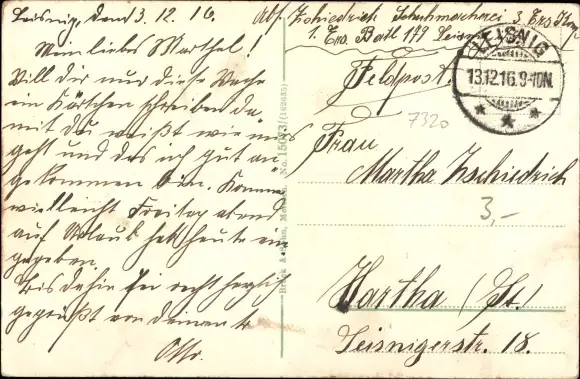 Leisnig, den 13.12.16.
Mein liebes Marthel!
Will dir nur diese Woche
ein Kärtchen schreiben da-
mit du weißt wie mirs
geht und das ich gut an-
gekommen bin. Komme
vielleicht Freitag abend
auf Urlaub hab heute ein
gegeben.
Bis dahin sei recht herzlich
gegrüßt von deinem
Otto.
Abs. Zschiedrich Schuhmacherei 3. Ers. Kom
1. Ers. Batl 179 Leisnig
Feldpost
LEISNIG
13.12.16. 9-10N.
7320
Frau
Martha Zschiedrich
3,-
Hartha (Sa.)
Leisnigerstr. 18.
No. 15093/(162635)